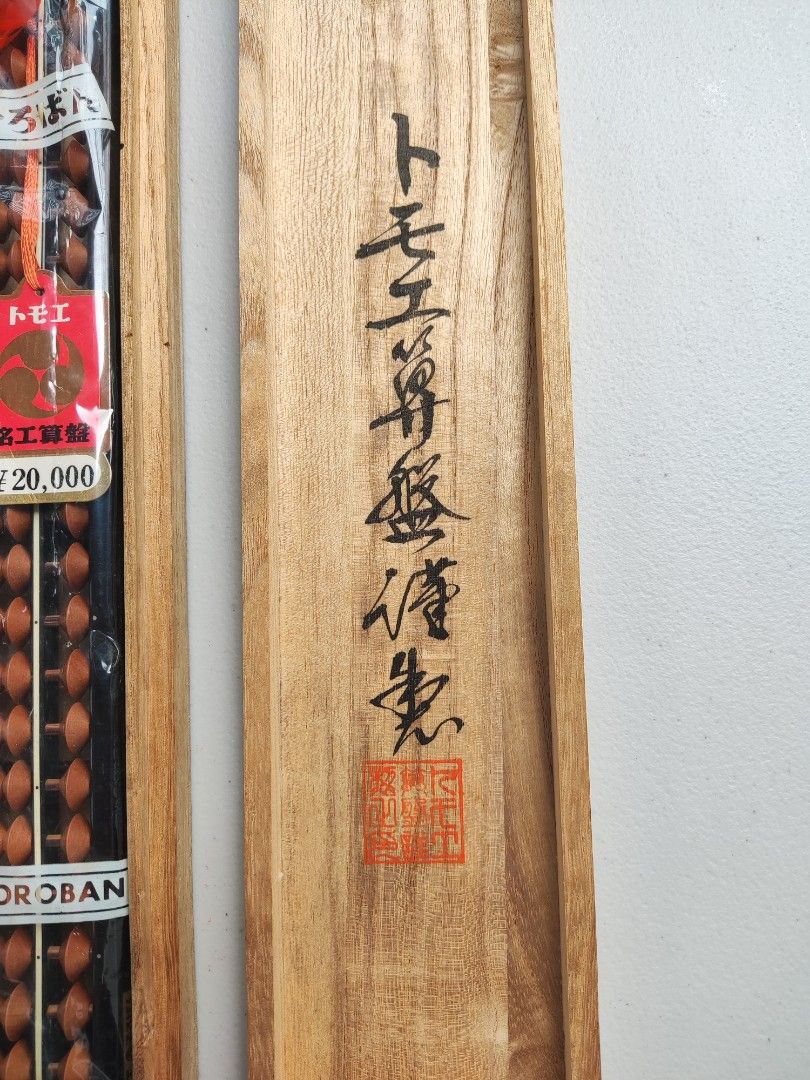 トモエ算盤謹製
ろばん
トモエ
工算盤
¥20,000
OROBAN